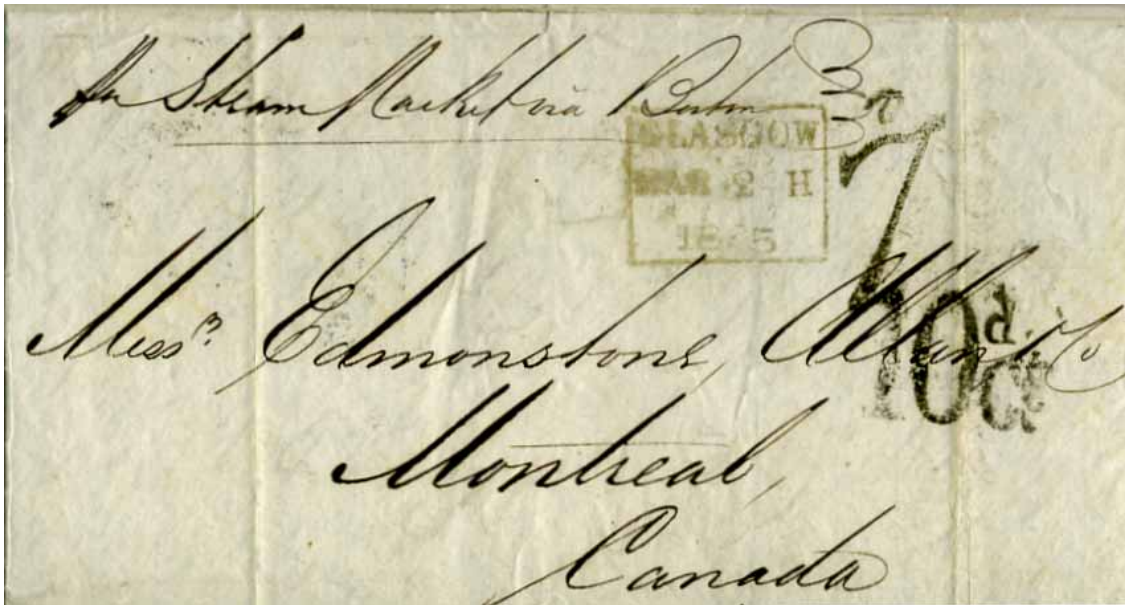 Per Steam Packet via Boston
GLASGOW
MAR 2 H
7
Messrs. Edmonstone, Allan & Co
10 cts
Montreal,
Canada